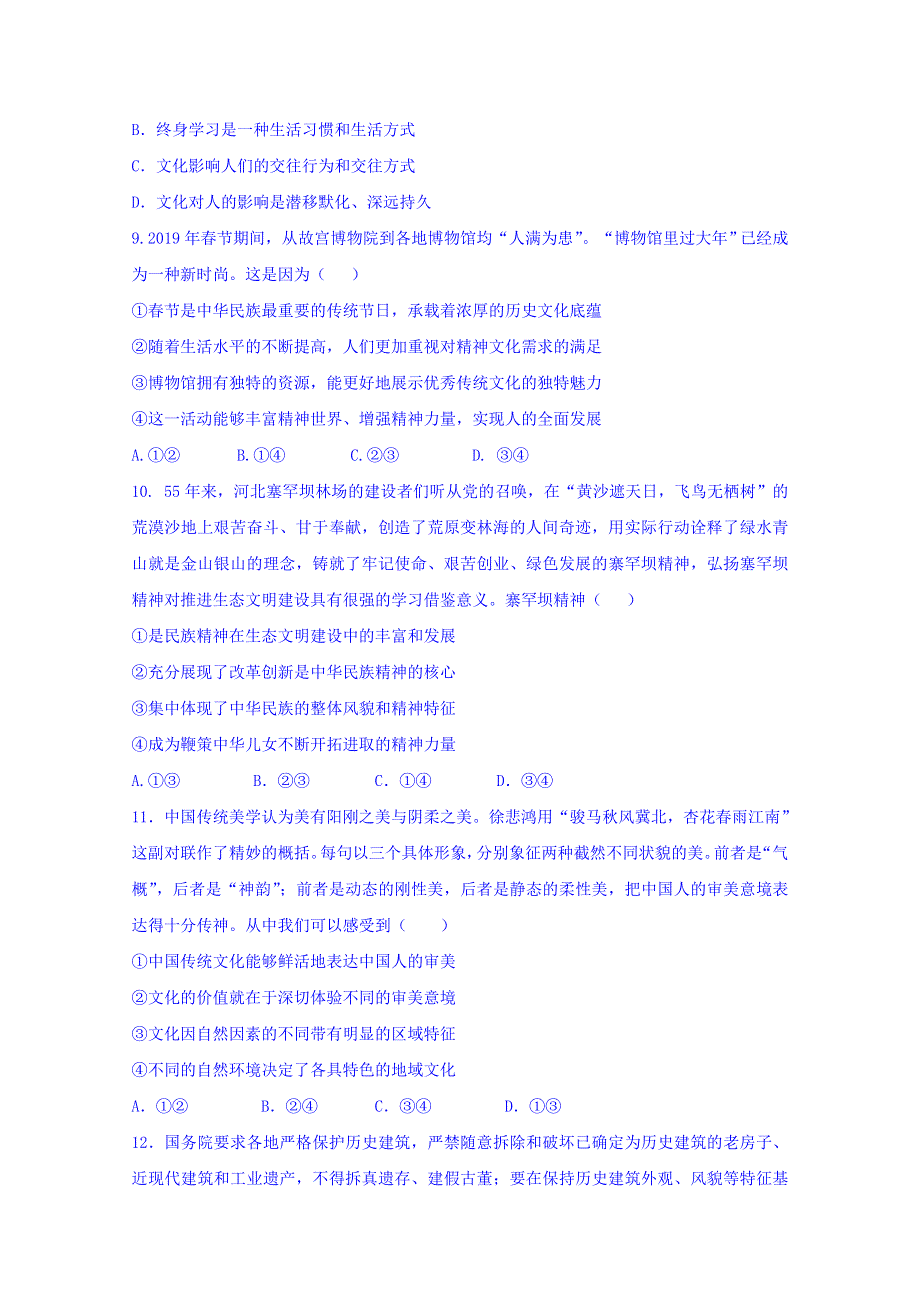 B．终身学习是一种生活习惯和生活方式
C．文化影响人们的交往行为和交往方式
D．文化对人的影响是潜移默化、深远持久
9.2019 年春节期间，从故宫博物院到各地博物馆均“人满为患”。“博物馆里过大年”已经成
为一种新时尚。这是因为（ ）
①春节是中华民族最重要的传统节日，承载着浓厚的历史文化底蕴
②随着生活水平的不断提高，人们更加重视对精神文化需求的满足
③博物馆拥有独特的资源，能更好地展示优秀传统文化的独特魅力
④这一活动能够丰富精神世界、增强精神力量，实现人的全面发展
A.①② B.①④ C.②③ D. ③④
10. 55 年来，河北塞罕坝林场的建设者们听从党的召唤，在“黄沙遮天日，飞鸟无栖树”的
荒漠沙地上艰苦奋斗、甘于奉献，创造了荒原变林海的人间奇迹，用实际行动诠释了绿水青
山就是金山银山的理念，铸就了牢记使命、艰苦创业、绿色发展的塞罕坝精神，弘扬塞罕坝
精神对推进生态文明建设具有很强的学习借鉴意义。寨罕坝精神（ ）
①是民族精神在生态文明建设中的丰富和发展
②充分展现了改革创新是中华民族精神的核心
③集中体现了中华民族的整体风貌和精神特征
④成为鞭策中华儿女不断开拓进取的精神力量
A.①③ B．②③ C．①④ D．③④
11．中国传统美学认为美有阳刚之美与阴柔之美。徐悲鸿用“骏马秋风冀北，杏花春雨江南”
这副对联作了精妙的概括。每句以三个具体形象，分别象征两种截然不同状貌的美。前者是“气
概”，后者是“神韵”；前者是动态的刚性美，后者是静态的柔性美，把中国人的审美意境表
达得十分传神。从中我们可以感受到（ ）
①中国传统文化能够鲜活地表达中国人的审美
②文化的价值就在于深切体验不同的审美意境
③文化因自然因素的不同带有明显的区域特征
④不同的自然环境决定了各具特色的地域文化
A．①② B．②④ C．③④ D．①③
12．国务院要求各地严格保护历史建筑，严禁随意拆除和破坏已确定为历史建筑的老房子、
近现代建筑和工业遗产，不得拆真遗存、建假古董；要在保持历史建筑外观、风貌等特征基